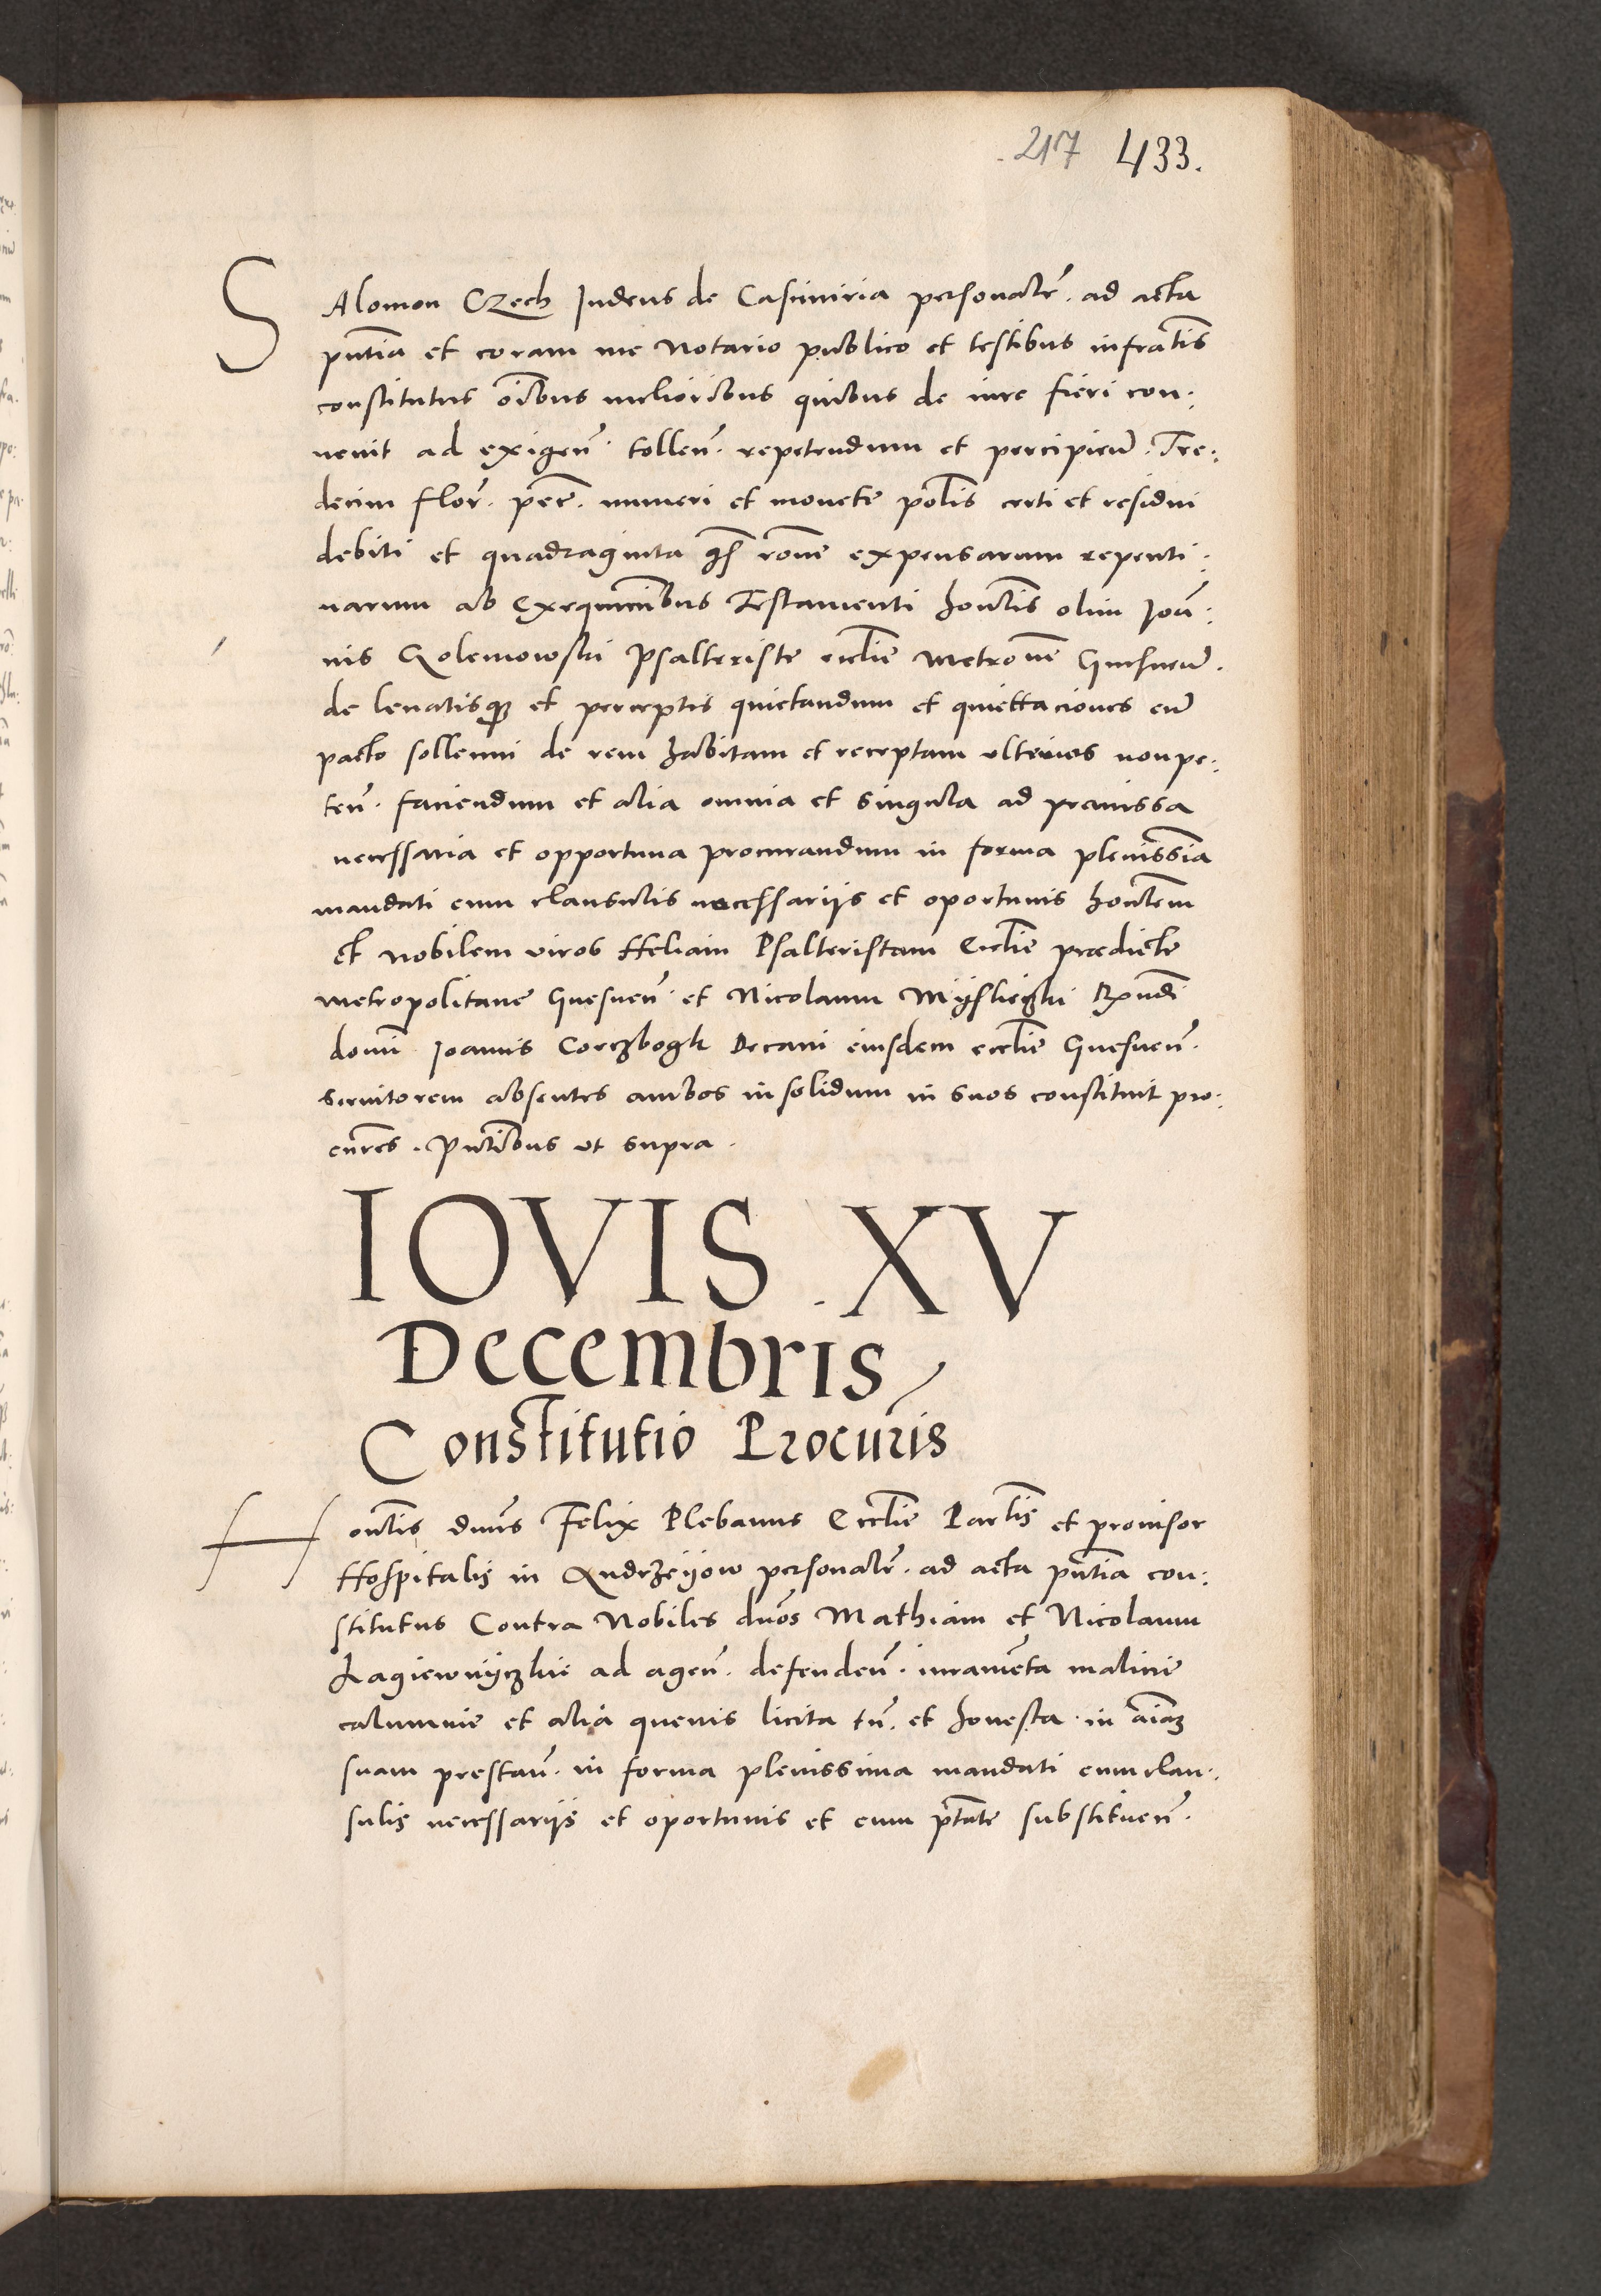 217 433.
SAlomon Czech Iudeus de Casimiria personalr̃. ad acta
pñtia et coram me Notario publico et testibus infratis
constitutus oĩbus melioribus quibus de iure fieri con:
venit ad exigeñ. tolleñ. repetendum et percipieñ. Tre:
decim flor̃. pec̃. numeri et monete polis certi et residui
debiti et quadraginta gs̃ rone expensarum repenti:
narum ab Testamenti hontis olim Joañ:
nis Golemowski Psalteriste ecclie Metrone Gnesneñ.
de levatisq3 et perceptis quietandum et quiettaciones cum̃
pacto sollenni de rem habitam et receptam ulterius non pe:
teñ. faciendum et alia omnia et singula ad premissa
necessaria et opportuna procurandum in forma plenissĩa
mandati cum clausulis necessariis et oportunis hontem
et nobilem viros Heliam Psalteristam Ecclie predicte
Metropolitane Gnesneñ. et Nicolaum Myslieghi Rxñdi
domĩ Joannis Corczbogk Decani eiusdem ecclie Gnesneñ.
servitorem absentes ambos in solidum in suos constituit pro:
cur̃es. Pñtibus ut supra.
IOVIS . XV
Decembris
Constitutio Procur̃is
Hontis dnus Felix Plebanus Ecclie Partis et provisor
Hospitalis in Andrzeyow personalr̃. ad acta pñtia con:
stitutus Contra Nobiles dnos Mathiam et Nicolaum
Lagiewnyczkie ad ageñ. defendeñ. iuramẽta malicie
calumnie et alia quevis licita tñ. et honesta in aĩam
suam prestañ. in forma plenissima mandati cum clau:
sulis necessariis et oportunis et cum ptãte substitueñ.